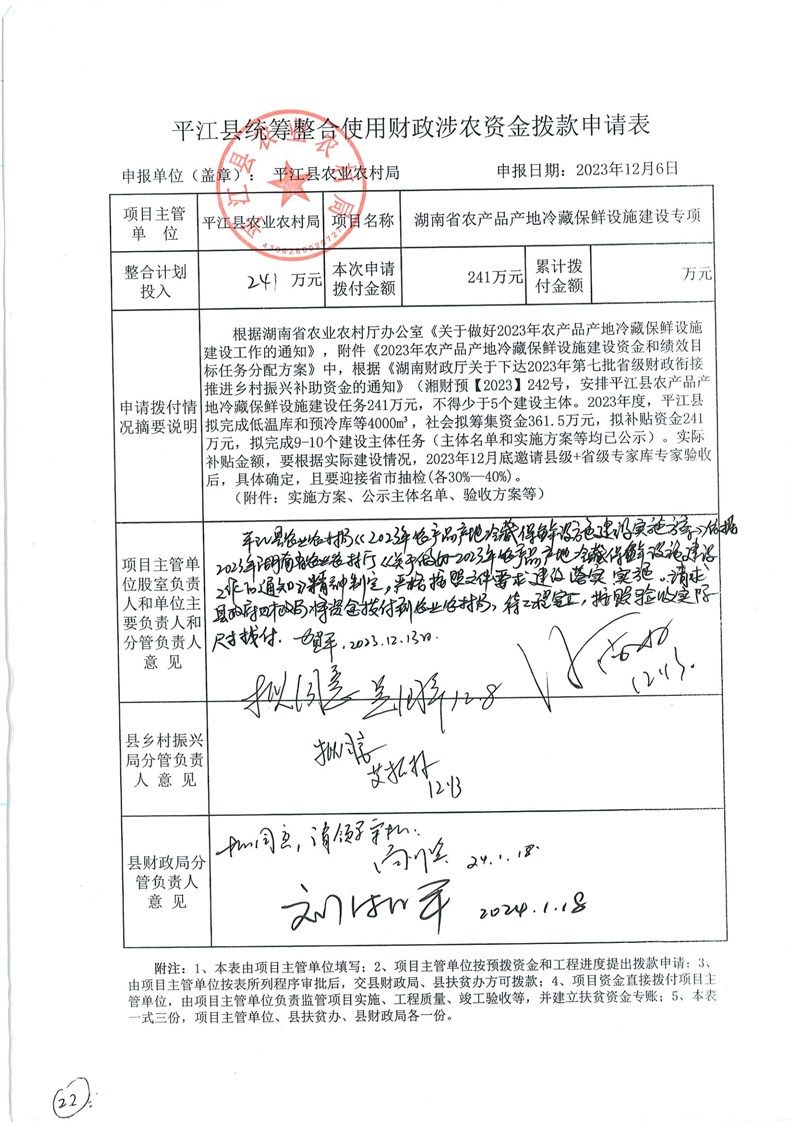 平江县统筹整合使用财政涉农资金拨款申请表
申报单位（盖章）： 平江县农业农村局 申报日期：2023年12月6日
项目主管单 位 平江县农业农村局 项目名称 湖南省农产品产地冷藏保鲜设施建设专项
整合计划投入 241 万元 本次申请拨付金额 241万元 累计拨付金额 万元
申请拨付情况摘要说明
根据湖南省农业农村厅办公室《关于做好2023年农产品产地冷藏保鲜设施
建设工作的通知》，附件《2023年农产品产地冷藏保鲜设施建设资金和绩效目
标任务分配方案》中，根据《湖南财政厅关于下达2023年第七批省级财政衔接
推进乡村振兴补助资金的通知》（湘财预【2023】242号，安排平江县农产品产
地冷藏保鲜设施建设任务241万元，不得少于5个建设主体。2023年度，平江县
拟完成低温库和预冷库等4000m³，社会拟筹集资金361.5万元，拟补贴资金241
万元，拟完成9-10个建设主体任务（主体名单和实施方案等均已公示）。实际
补贴金额，要根据实际建设情况，2023年12月底邀请县级+省级专家库专家验收
后，具体确定，且要迎接省市抽检(各30%—40%)。
（附件：实施方案、公示主体名单、验收方案等）
项目主管单
位股室负责
人和单位主
要负责人和
分管负责人
意 见
平江县农业农村局《2023年农产品产地冷藏保鲜设施建设实施方案》依据
2023年湖南省农业农村厅《关于做好2023年农产品产地冷藏保鲜设施建设
工作的通知》精神制定，严格按照文件要求建设落实实施。请求
县政府财政局将资金拨付到农业农村局，待工程完工，按照验收实际
尺寸拨付. 2023.12.13日.
拟同意 12.8
12.13.
县乡村振兴
局分管负责
人 意 见
拟同意
12.13
县财政局分
管负责人
意 见
拟同意，请领导审批.
24.1.18.
2024.1.18
附注：1、本表由项目主管单位填写；2、项目主管单位按预拨资金和工程进度提出拨款申请；3、
由项目主管单位按表所列程序审批后，交县财政局、县扶贫办方可拨款；4、项目资金直接拨付项目主
管单位，由项目主管单位负责监管项目实施、工程质量、竣工验收等，并建立扶贫资金专账；5、本表
一式三份，项目主管单位、县扶贫办、县财政局各一份。
22